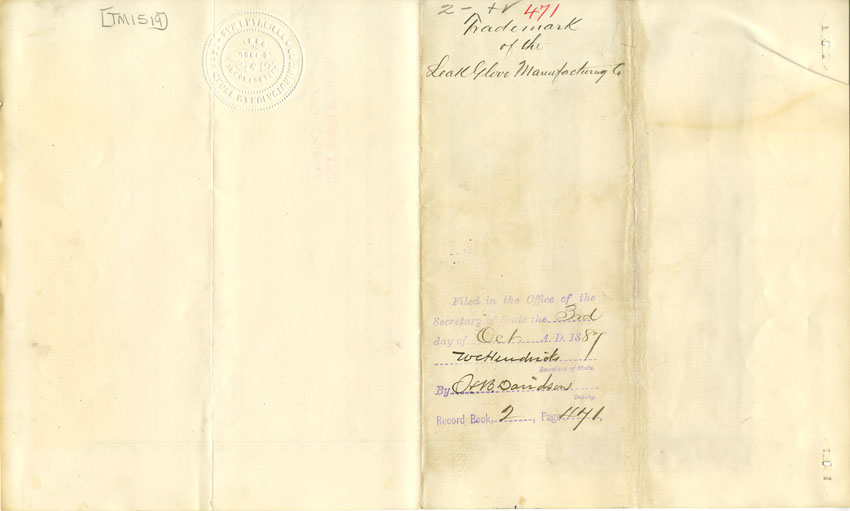 [TM1519]
2- 471
Trademark
of the
Leak Glove Manufacturing Co
Filed in the Office of the
Secretary of State the 3rd
day of Oct A. D. 1887
W C Hendricks
Secretary of State.
By Davidson
Deputy.
Record Book, 2, Page 471